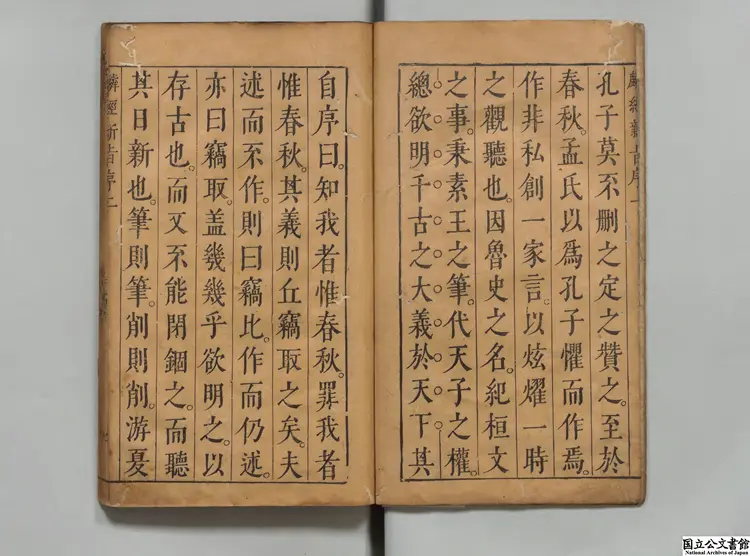 麟經新旨序一
孔子莫不刪之定之贊之。至於
春秋。孟氏以爲孔子懼而作焉。
作非私創一家言。以炫燿一時
之觀聽也。因魯史之名。紀桓文
之事。秉素王之筆。代天子之權。
總欲明千古之大義於天下。其
自序曰。知我者惟春秋。罪我者
惟春秋。其義則丘竊取之矣。夫
述而不作。則曰竊比。作而仍述。
亦曰竊取。盖幾幾乎欲明之。以
存古也。而又不能閉錮之。而聽
其日新也。筆則筆。削則削。游夏
麟經新旨序二
国立公文書館
National Archives of Japan